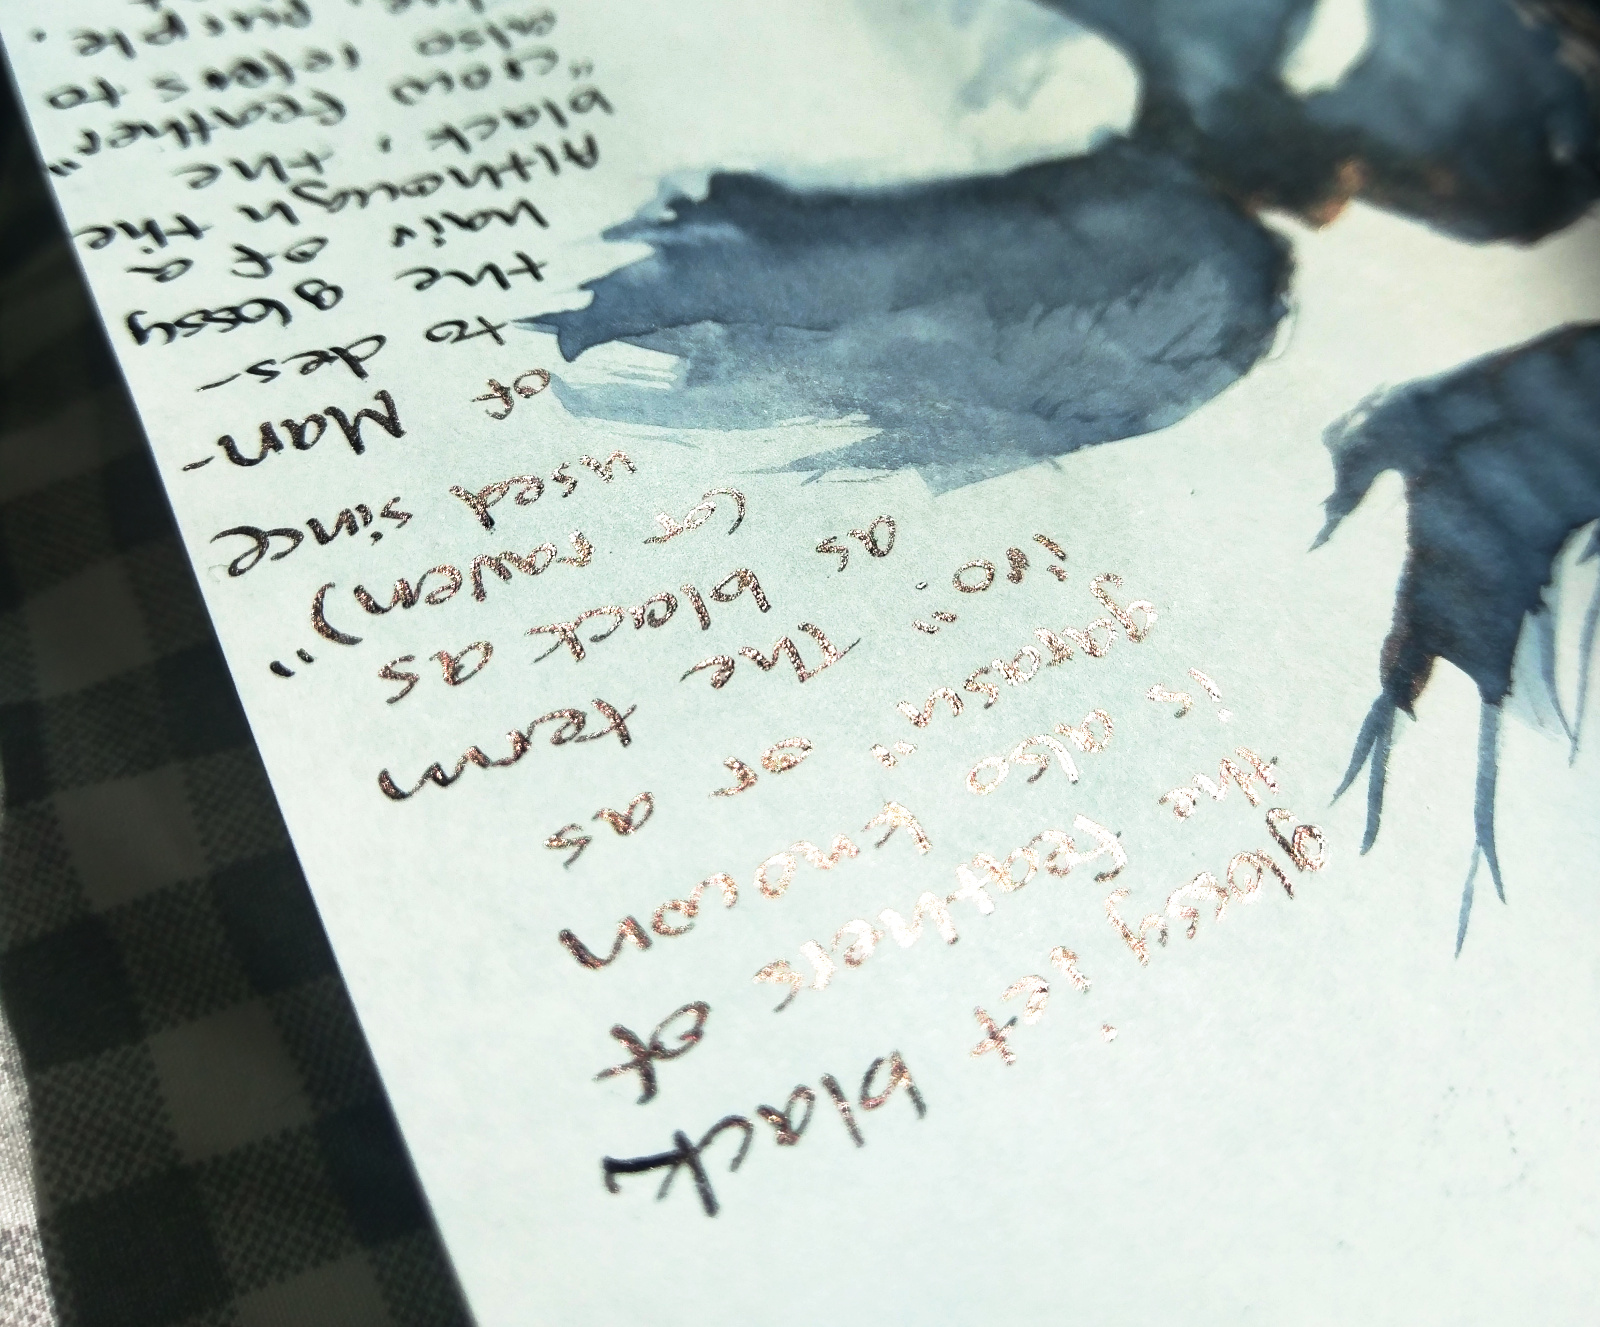 glossy jet black
the feathers of
is also known
garasu" or as
iro". The term
as black as
(or raven)"
used since
of Man-
to des-
the glossy
hair of a
Although the
black, the
"crow feather"
also refers to
purple.